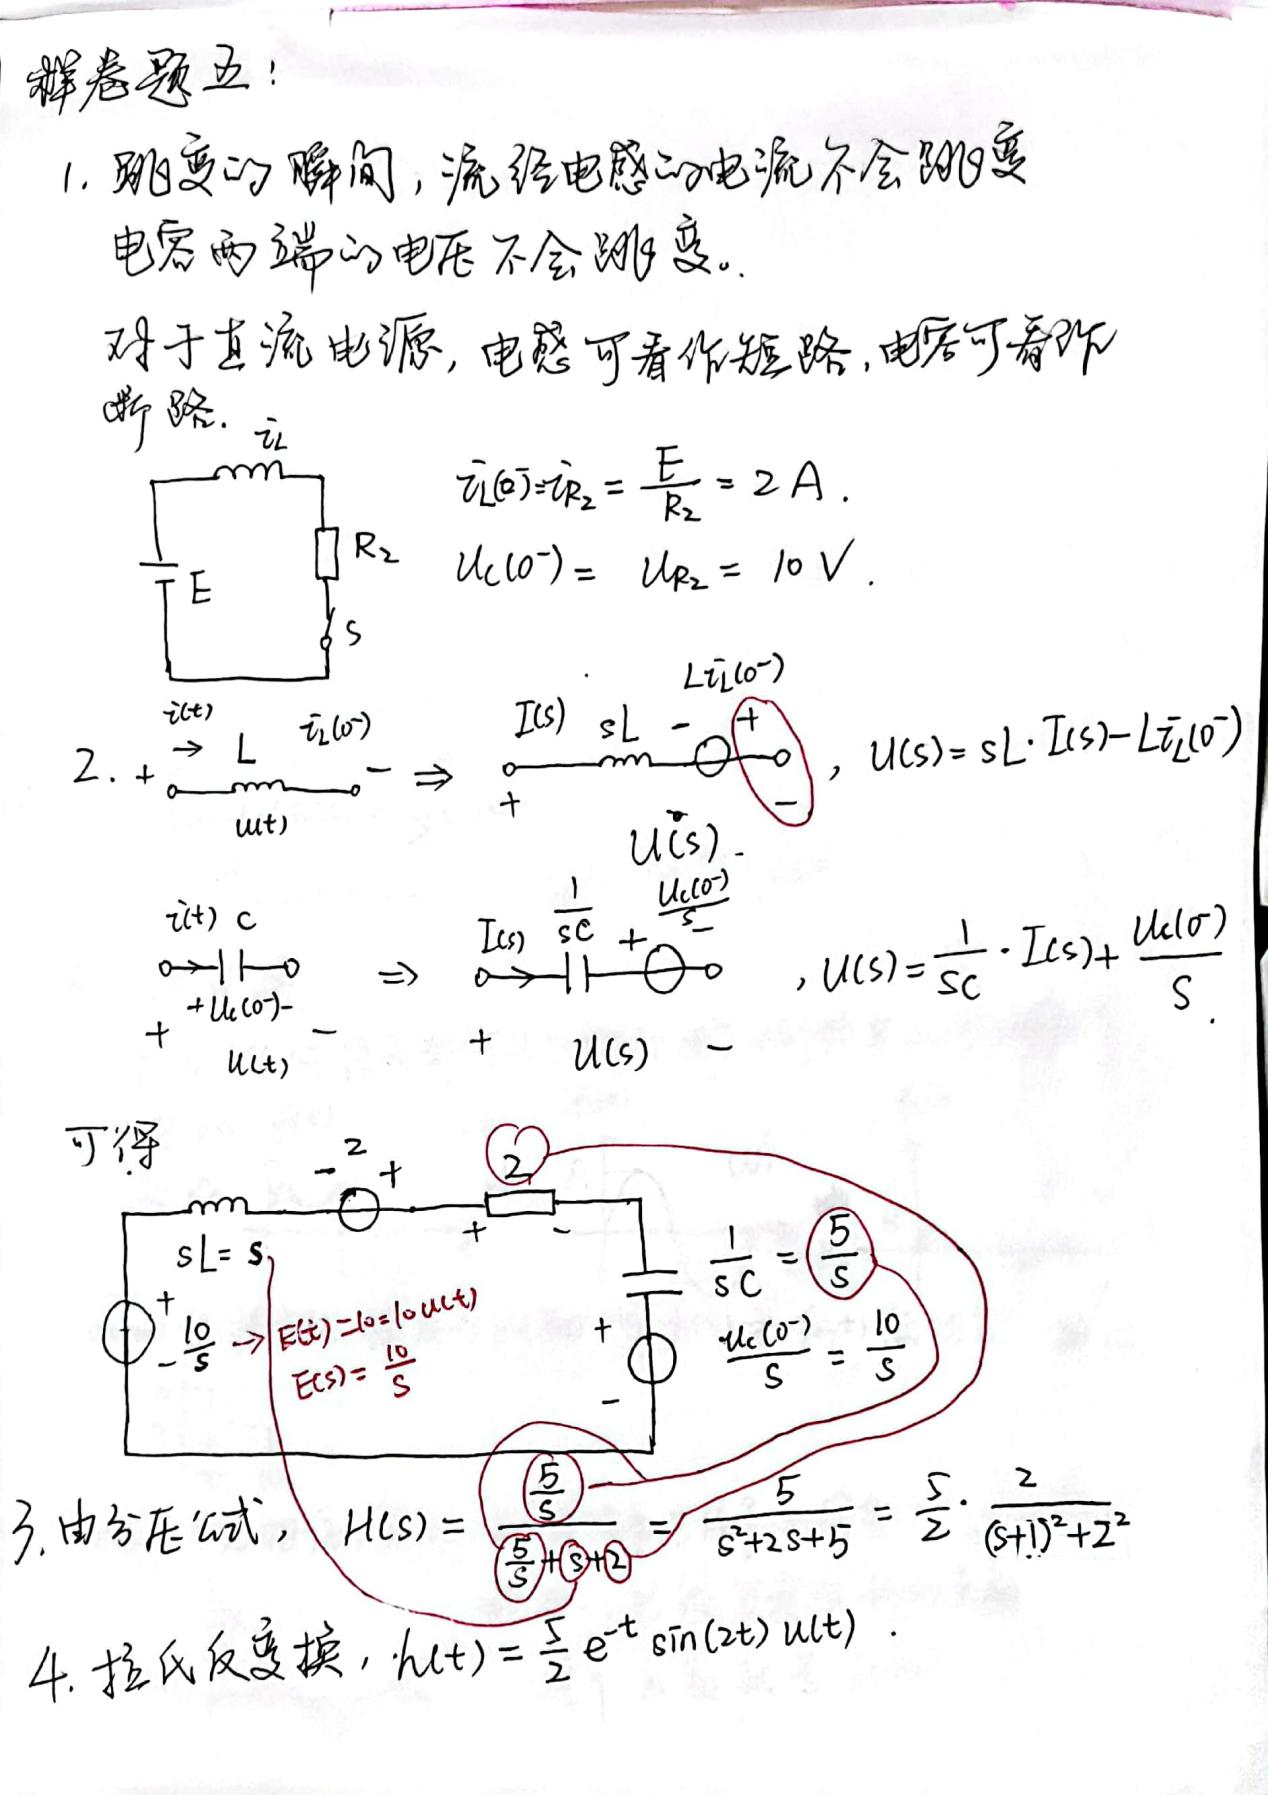 样卷题五:
1. 跳变的瞬间,流经电感的电流不会跳变
电容两端的电压不会跳变。
对于直流电源,电感可看作短路,电容可看作
断路.
iL
E
R2
S
iL(0-)=iR2 = E/R2 = 2A.
Uc(0-) = UR2 = 10V.
2. + i(t) → L iL(0-) - u(t)
⇒ I(s) sL - LiL(0-) + + U(s) -
, U(s) = sL·I(s) - LiL(0-)
i(t) C + Uc(0-) - + u(t) -
⇒ I(s) 1/sC + Uc(0-)/s - + U(s) -
, U(s) = 1/sC · I(s) + Uc(0-)/s.
可得
- 2 +
2
+ -
sL = s
+ 10/s -
→ E(t)=10=10u(t)
E(s) = 10/s
1/sC = 5/s
+ -
uc(0-)/s = 10/s
3. 由分压公式, H(s) = (5/s)/(5/s+s+2) = 5/(s²+2s+5) = 5/2 · 2/((s+1)²+2²)
4. 拉氏反变换, h(t) = 5/2 e^-t sin(2t) u(t).